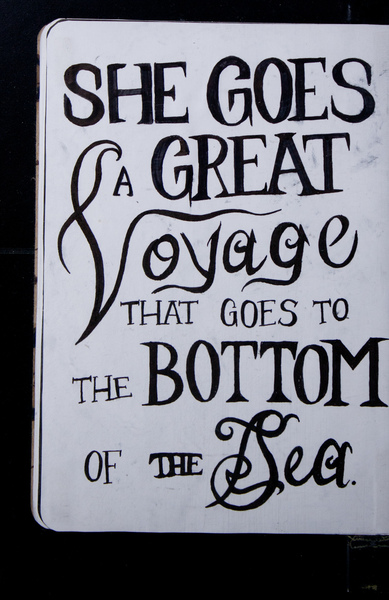 SHE GOES
A GREAT
Voyage
THAT GOES TO
THE BOTTOM
OF THE Sea.